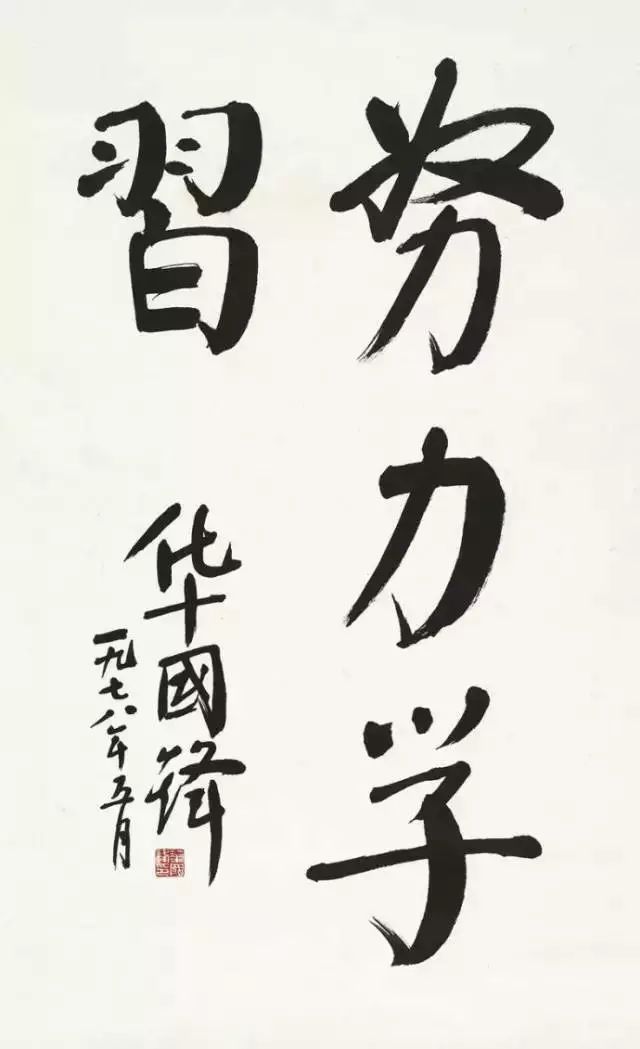 努力学
習
华國锋
一九七八年五月